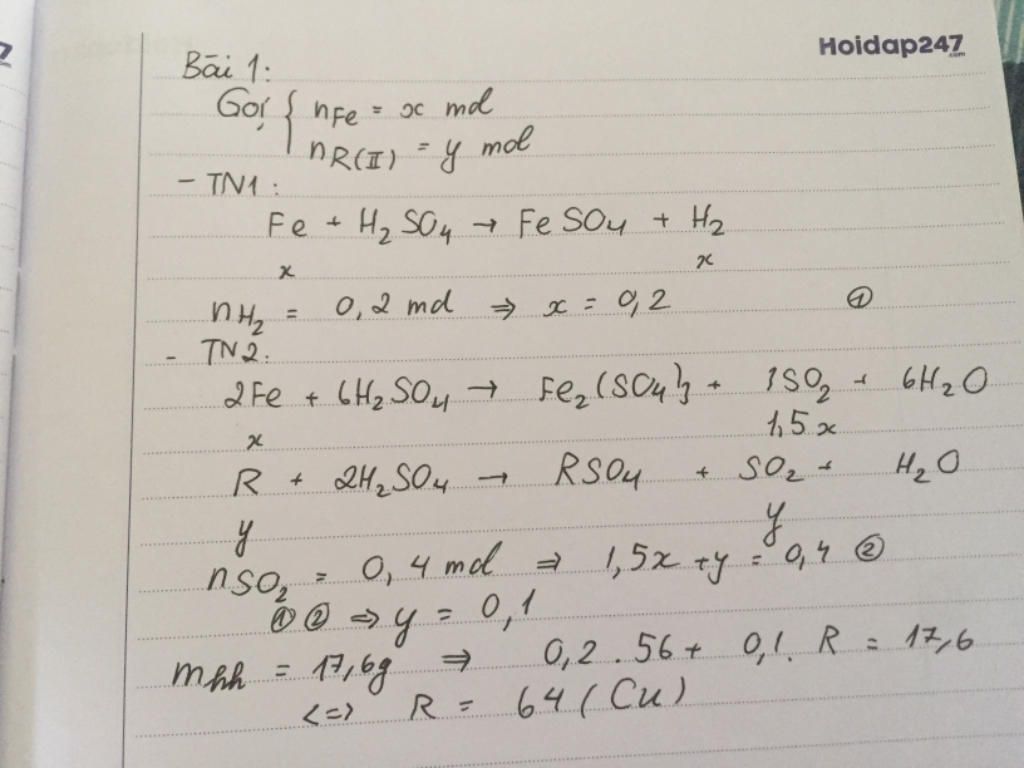 7
Hoidap247
.com
Bài 1:
Gọi { nFe = x mol
nR(II) = y mol
- TN1:
Fe + H₂SO₄ → FeSO₄ + H₂
x x
nH₂ = 0,2 mol ⇒ x = 0,2 ①
- TN2:
2Fe + 6H₂SO₄ → Fe₂(SO₄)₃ + 3SO₂ + 6H₂O
x 1,5x
R + 2H₂SO₄ → RSO₄ + SO₂ + H₂O
y y
nSO₂ = 0,4 mol ⇒ 1,5x + y = 0,4 ②
① ② ⇒ y = 0,1
mhh = 17,6g ⇒ 0,2 . 56 + 0,1. R = 17,6
<=> R = 64 (Cu)